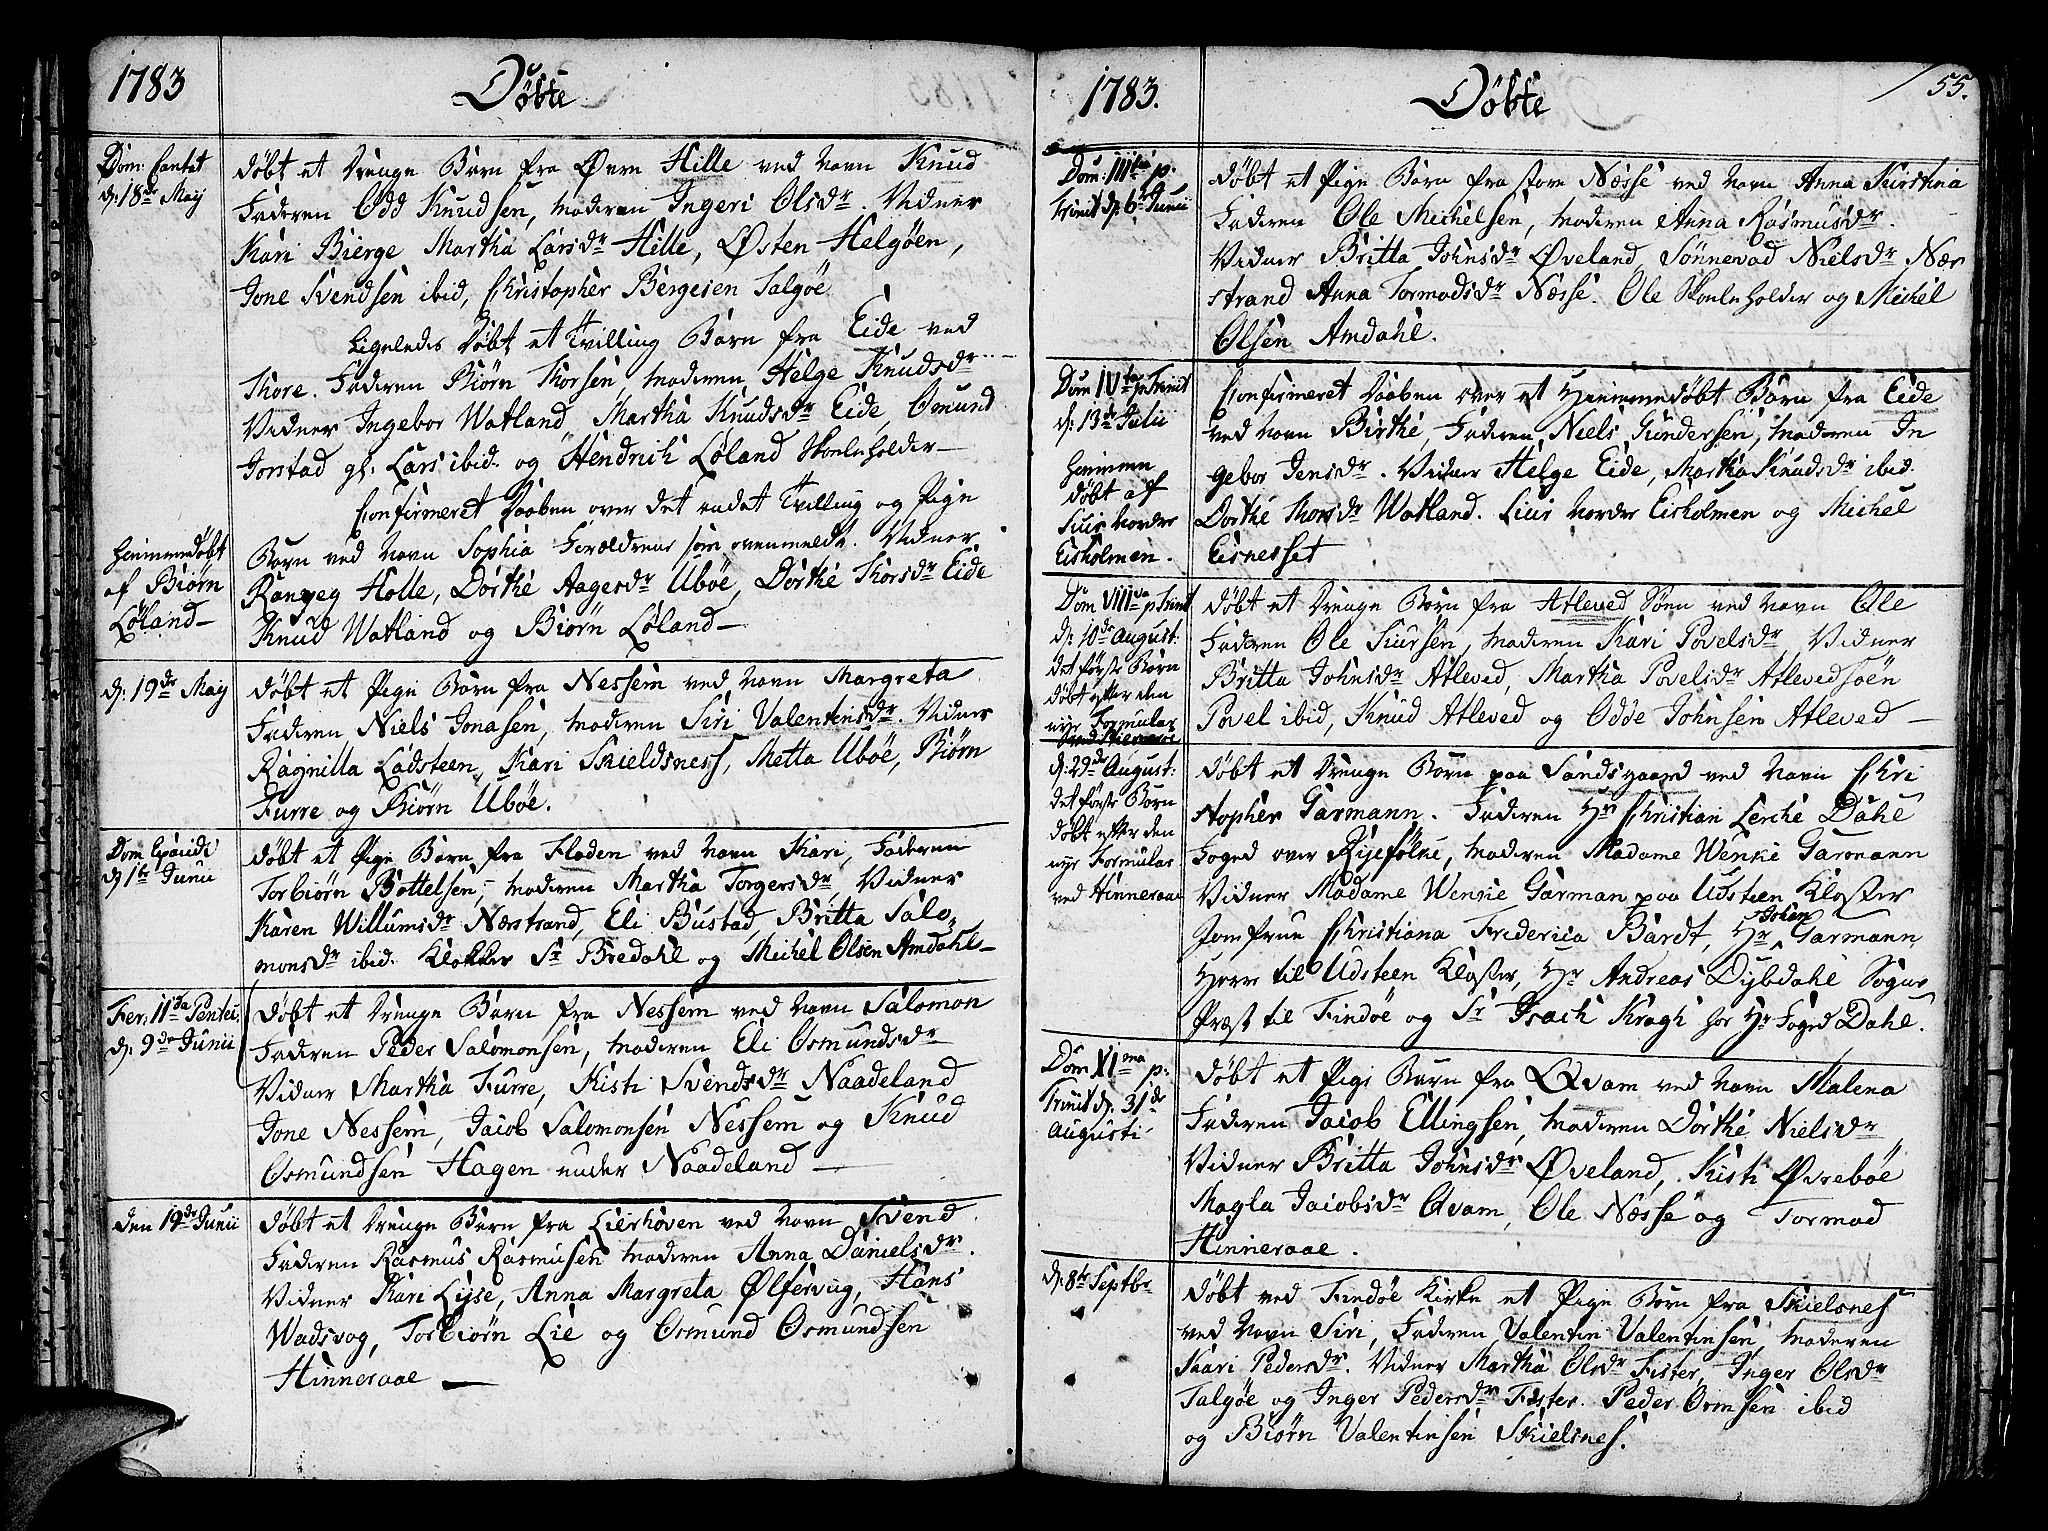 1783
Døbte
Dom: Cantat
d: 18de Maij
døbt et Drenge Barn fra Øvre Hille ved Navn Knud
Faderen Odd Knudsen, Moderen Ingeri Olsdr. Vidner
Kari Bierge Martha Larsdr Hille, Østen Helgøen,
Jone Svendsen ibid, Christopher Bergesen Talgöe
Ligeledes Døbt et Tvilling Barn fra Eide ved
Thore. Faderen Biørn Thorsen, Moderen Helge Knudsdr
Vidner Ingebor Watland, Martha Knudsdr Eide, Omund
Jorstad gl: Lars ibid. og Hendrich Løland Skoeleholder
Confirmeret Daaben over det andet Tvilling og Pige
hiemmedøbt
af Biørn
Løland
Barn ved Navn Sophia Forældrene som ovenmeldt. Vidner
Ranveg Holle, Dorthe Aagesdr Ubøe, Dorthe Thorsdr Eide
Knud Watland og Biørn Løland
d: 19de Maij
døbt et Pige Barn fra Nessem ved Navn Margreta
Faderen Niels Jonasen, Moderen Siri Valentinsdr. Vidner
Ragnilla Ladsteen, Kari Skieldsness, Metta Ubøe, Biørn
Furre og Biørn Ubøe.
Dom Exaudi
d 1te Junii
døbt et Pige Barn fra Floden ved Navn Kari, Faderen
Torbiørn Bottelsen, Moderen Martha Torgersdr, Vidner
Karen Willumsdr Nærstrand, Eli Bustad, Britta Salo,
monsdr ibid. Klokker Sr Bredahl og Michel Olsen Amdahl
Fer: IIda Pentec
d: 9de Junii
døbt et Drenge Barn fra Nessem ved Navn Salomon
Faderen Peder Salomonsen, Moderen Eli Osmundsdr
Vidner Martha Furre, Kisti Svendsdr Naadeland
Jone Nessem, Jacob Salomonsen Nessem og Knud
Osmundsen Hagen under Naadeland
den 19de Junii
døbt et Drenge Barn fra Lierhoven ved Navn Svend
Faderen Rasmus Rasmusen Moderen Anna Danielsdr.
Vidner Kari Lyse, Anna Margreta Ølfervug, Hans
Wadsvog, Torbiørn Lie og Osmund Osmundsen
Hinneraae
1783.
Døbte
55.
Dom: IIItia p.
Trinit d: 6te Junii
døbt et Pige Barn fra store Næsse ved Navn Anna Kirstina
Faderen Ole Michelsen, Moderen Anna Rasmusdr.
Vidner Britta Johnsdr Øveland, Sønnevad Nielsdr Nær
strand Anna Tormodsdr Næsse. Ole Skoeleholder og Michel
Olsen Amdahl.
Dom IVta p Trinit
d: 13de Julii
hiemme
døbt af
Siur Nordre
Eisholmen.
Confirmeret Daaben over et Hiemmedøbt Barn fra Eide
ved Navn Birthe, Faderen Niels Gundersen, Moderen In
gebor Jensdr. Vidner Helge Eide, Martha Knudsdr ibid.
Dorthe Thorsdr Watland. Siur Nordre Eisholmen og Michel
Eisnesset
Dom VIIIva p Trinit
d: 10de August:
det første Barn
døbt efter den
nye Formular
døbt et Drenge Barn fra Atleved Søen ved Navn Ole
Faderen Ole Siursen, Moderen Kari Povelsdr, Vidner
Britta Johnsdr Atleved, Martha Povelsdr Atlevedsöen
Povel ibid, Knud Atleved og Odde Johnsen Atleved
d: 29de August:
det første Barn
døbt efter den
nye Formular
ved Hinneraae
døbt et Drenge Barn paa Sandsgaard ved Navn Chri
stopher Garmann. Faderen Hr Christian Lerche Dahl
Foged over Ryefølke, Moderen Madame Wenke Garmann
Vidner Madame Wenke Garman paa Udsteen Kloster
Jomfrue Christiana Friderica Bardt, Hr Johan Garmann
Herre til Udsteen Kloster, Hr Andreas Dybdahl Sogne
Præst til Findøe og Sr Isach Kragh hos Hr Foged Dahl.
Dom XIma p:
Trinit d. 31de
Augusti
døbt et Pige Barn fra Qvam ved Navn Malena
Faderen Jacob Ellingsen, Moderen Dorthe Nielsdr
Vidner Britta Johnsdr Øveland, Kisti Øvrebøe
Magla Jacobsdr Qvam, Ole Næsse og Tormod
Hinneraae.
d: 8te Septbr
døbt ved Findøe Kirke et Pige Barn fra Skielsnes
ved Navn Siri, Faderen Valentin Valentinsen, Moderen
Kari Pedersdr. Vidner Martha Olsdr Fister, Inger Olsdr
Talgøe og Inger Pedersdr Fister. Peder Ormsen ibid
og Biørn Valentinsen Skielsnes.